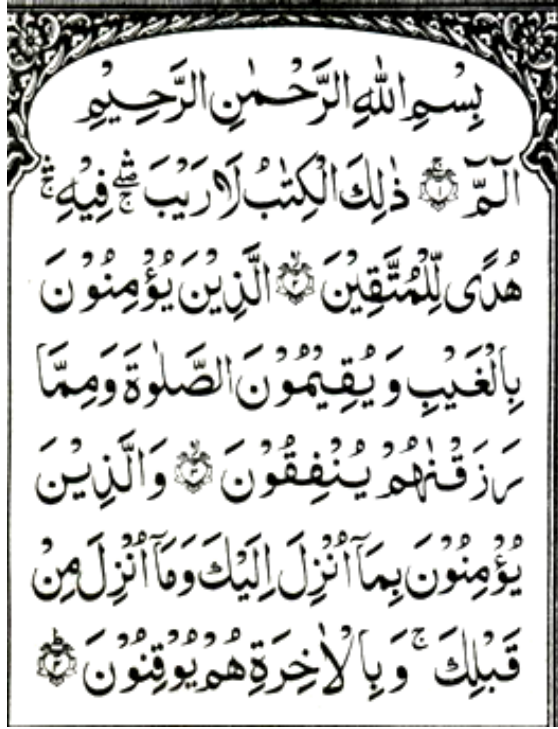 بِسْمِ اللّٰهِ الرَّحْمٰنِ الرَّحِيْمِ
الٓمّٓ ۚ﴿۱﴾ ذٰلِكَ الْكِتٰبُ لَا رَيْبَ ۖۛۚ فِيْهِ ۛۚ
هُدًى لِّلْمُتَّقِيْنَ ۙ﴿۲﴾ الَّذِيْنَ يُؤْمِنُوْنَ
بِالْغَيْبِ وَ يُقِيْمُوْنَ الصَّلٰوةَ وَمِمَّا
رَزَقْنٰهُمْ يُنْفِقُوْنَ ۙ﴿۳﴾ وَالَّذِيْنَ
يُؤْمِنُوْنَ بِمَآ اُنْزِلَ اِلَيْكَ وَمَآ اُنْزِلَ مِنْ
قَبْلِكَ ۚ وَبِالْاٰخِرَةِ هُمْ يُوْقِنُوْنَ ؕ﴿۴﴾